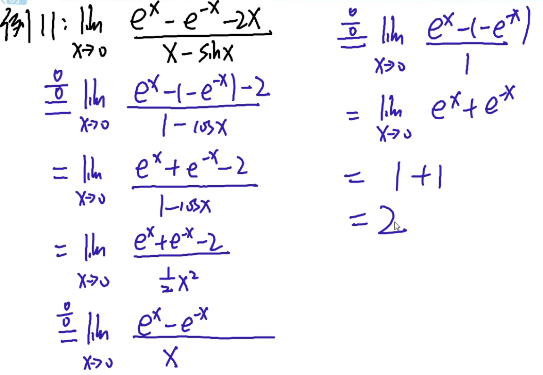 例11: lim x→0 (e^x - e^-x - 2x)/(x - sinx)
0/0 = lim x→0 (e^x - (-e^-x) - 2)/(1 - cosx)
= lim x→0 (e^x + e^-x - 2)/(1 - cosx)
= lim x→0 (e^x + e^-x - 2)/(1/2 x^2)
0/0 = lim x→0 (e^x - e^-x)/x
0/0 = lim x→0 (e^x - (-e^-x))/1
= lim x→0 e^x + e^-x
= 1 + 1
= 2